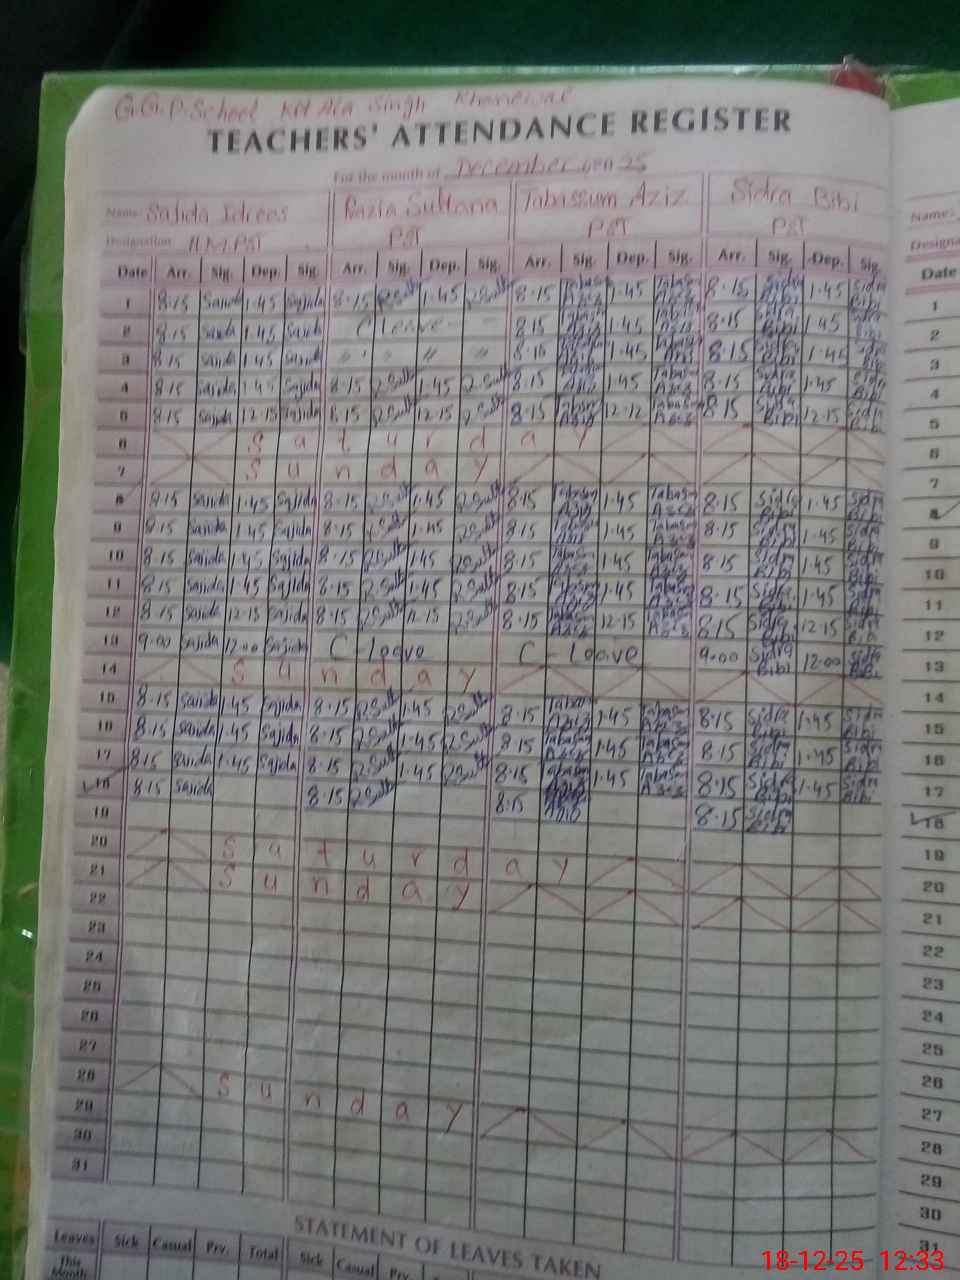 G.G.P.School Kot Ala Singh Khanewal
TEACHERS' ATTENDANCE REGISTER
For the month of December 2025
Name: Sajida Idrees Razia Sultana Tabassum Aziz Sidra Bibi Name:
Designation H.M.PST PST PST PST
Date Arr. Sig. Dep. Sig. Arr. Sig. Dep. Sig. Arr. Sig. Dep. Sig. Arr. Sig. Dep. Sig. Date
1 8:15 Sajida 1:45 Sajida 8:15 RSult 1:45 RSult 8:15 Tabasm Aziz 1:45 Tabasm Aziz 8:15 Sidra Bibi 1:45 Sidra Bibi 1
2 8:15 Sajida 1:45 Sajida C Leave 8:15 1:45 8:15 Sidra Bibi 1:45 2
3 8:15 Sajida 1:45 Sajida " " " " 8:15 1:45 8:15 Sidra Bibi 1:45 3
4 8:15 Sajida 1:45 Sajida 8:15 RSult 1:45 RSult 8:15 1:45 8:15 Sidra Bibi 1:45 Sidra Bibi 4
5 8:15 Sajida 12:15 Sajida 8:15 RSult 12:15 RSult 8:15 12:12 8:15 Sidra Bibi 12:15 Sidra Bibi 5
6 Saturday 6
7 Sunday 7
8 8:15 Sajida 1:45 Sajida 8:15 RSult 1:45 RSult 8:15 1:45 8:15 Sidra Bibi 1:45 Sidra Bibi 8
9 8:15 Sajida 1:45 Sajida 8:15 RSult 1:45 RSult 8:15 1:45 8:15 Sidra Bibi 1:45 Sidra Bibi 9
10 8:15 Sajida 1:45 Sajida 8:15 RSult 1:45 RSult 8:15 1:45 8:15 Sidra Bibi 1:45 Sidra Bibi 10
11 8:15 Sajida 1:45 Sajida 8:15 RSult 1:45 RSult 8:15 1:45 8:15 Sidra Bibi 1:45 Sidra Bibi 11
12 8:15 Sajida 12:15 Sajida 8:15 RSult 12:15 RSult 8:15 12:15 8:15 Sidra Bibi 12:15 Sidra Bibi 12
13 9:00 Sajida 12:00 Sajida C-Leave C-Leave 9:00 Sidra Bibi 12:00 Sidra Bibi 13
14 Sunday 14
15 8:15 Sajida 1:45 Sajida 8:15 RSult 1:45 RSult 8:15 1:45 8:15 Sidra Bibi 1:45 Sidra Bibi 15
16 8:15 Sajida 1:45 Sajida 8:15 RSult 1:45 RSult 8:15 1:45 8:15 Sidra Bibi 1:45 Sidra Bibi 16
17 8:15 Sajida 1:45 Sajida 8:15 RSult 1:45 RSult 8:15 1:45 8:15 Sidra Bibi 1:45 Sidra Bibi 17
18 8:15 Sajida 8:15 RSult 8:15 8:15 Sidra Bibi 18
19 19
20 Saturday 20
21 Sunday 21
22 22
23 23
24 24
25 25
26 26
27 27
28 Sunday 28
29 29
30 30
31 31
STATEMENT OF LEAVES TAKEN
Leaves Sick Casual Prv. Total Sick Casual Prv.
This Month
18-12-25 12:33